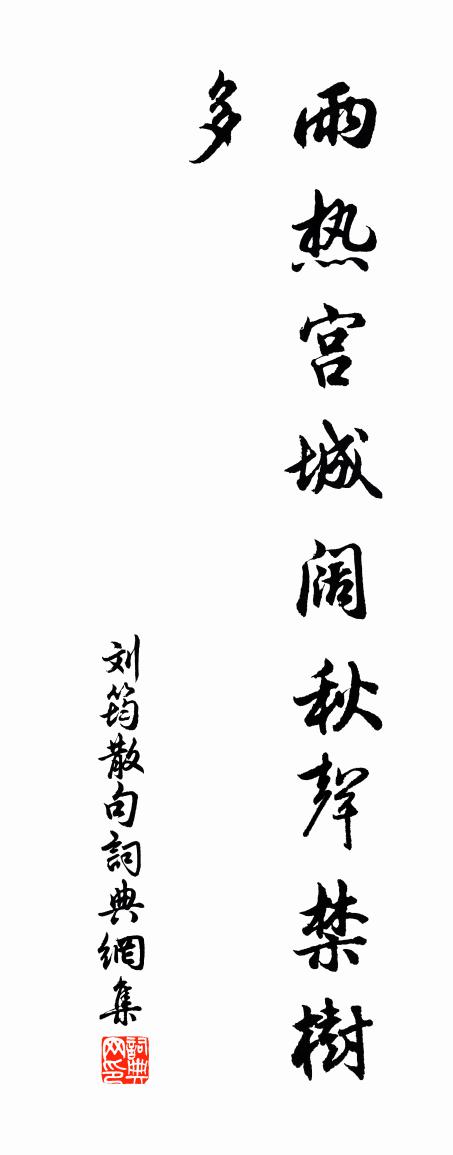 雨热宫城阔秋聲禁樹
多
刘筠散句詞典網集
詞典
网印